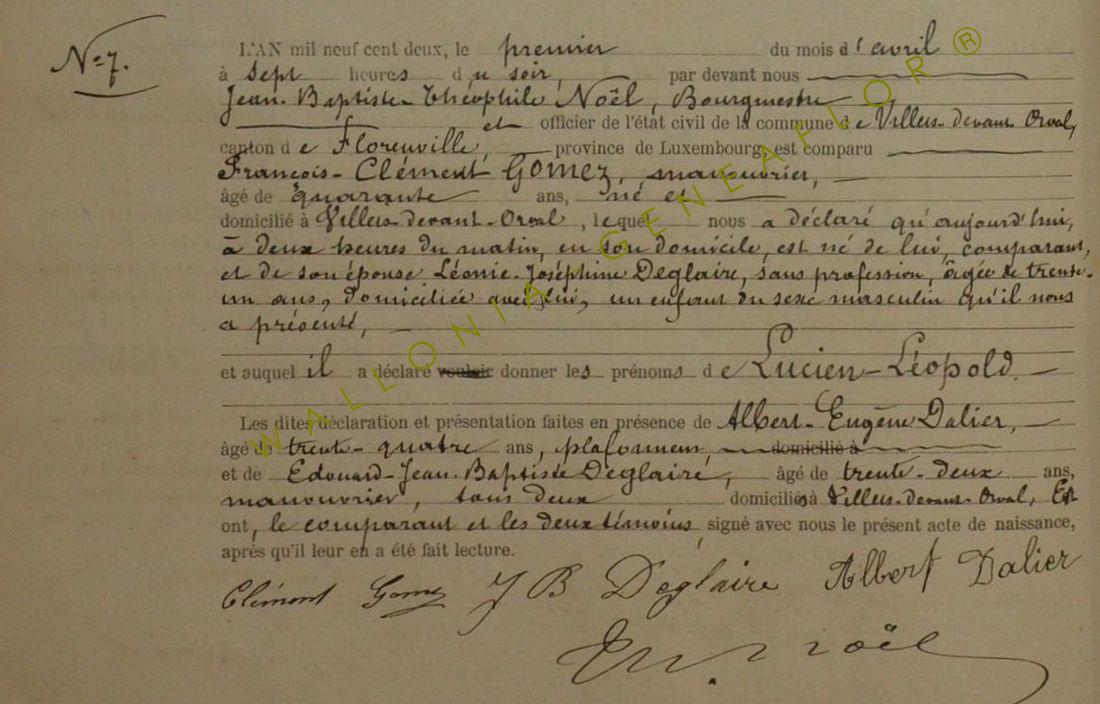 N° 7.
L'AN mil neuf cent deux, le premier du mois d'avril
à sept heures du soir, par devant nous
Jean-Baptiste-Théophile Noël, Bourgmestre
et officier de l'état civil de la commune de Villers-devant-Orval,
canton de Florenville, province de Luxembourg, est comparu
François-Clément Gomez, manouvrier,
âgé de quarante ans, né et
domicilié à Villers-devant-Orval, lequel nous a déclaré qu'aujourd'hui,
à deux heures du matin, en son domicile, est né de lui, comparant,
et de son épouse Léonie-Joséphine Deglaire, sans profession, âgée de trente-
un ans, domiciliée avec lui, un enfant du sexe masculin qu'il nous
a présenté,
et auquel il a déclaré vouloir donner les prénoms de Lucien-Léopold.
Les dites déclaration et présentation faites en présence de Albert-Eugène Dalier,
âgé de trente-quatre ans, plafonneur, domicilié à
et de Edouard-Jean-Baptiste Deglaire, âgé de trente-deux ans,
manouvrier, tous deux domiciliés à Villers-devant-Orval, Et
ont, le comparant et les deux témoins, signé avec nous le présent acte de naissance,
après qu'il leur en a été fait lecture.
Clément Gomez J B Deglaire Albert Dalier
Noël
WALLONIA GENEAFLOR ®